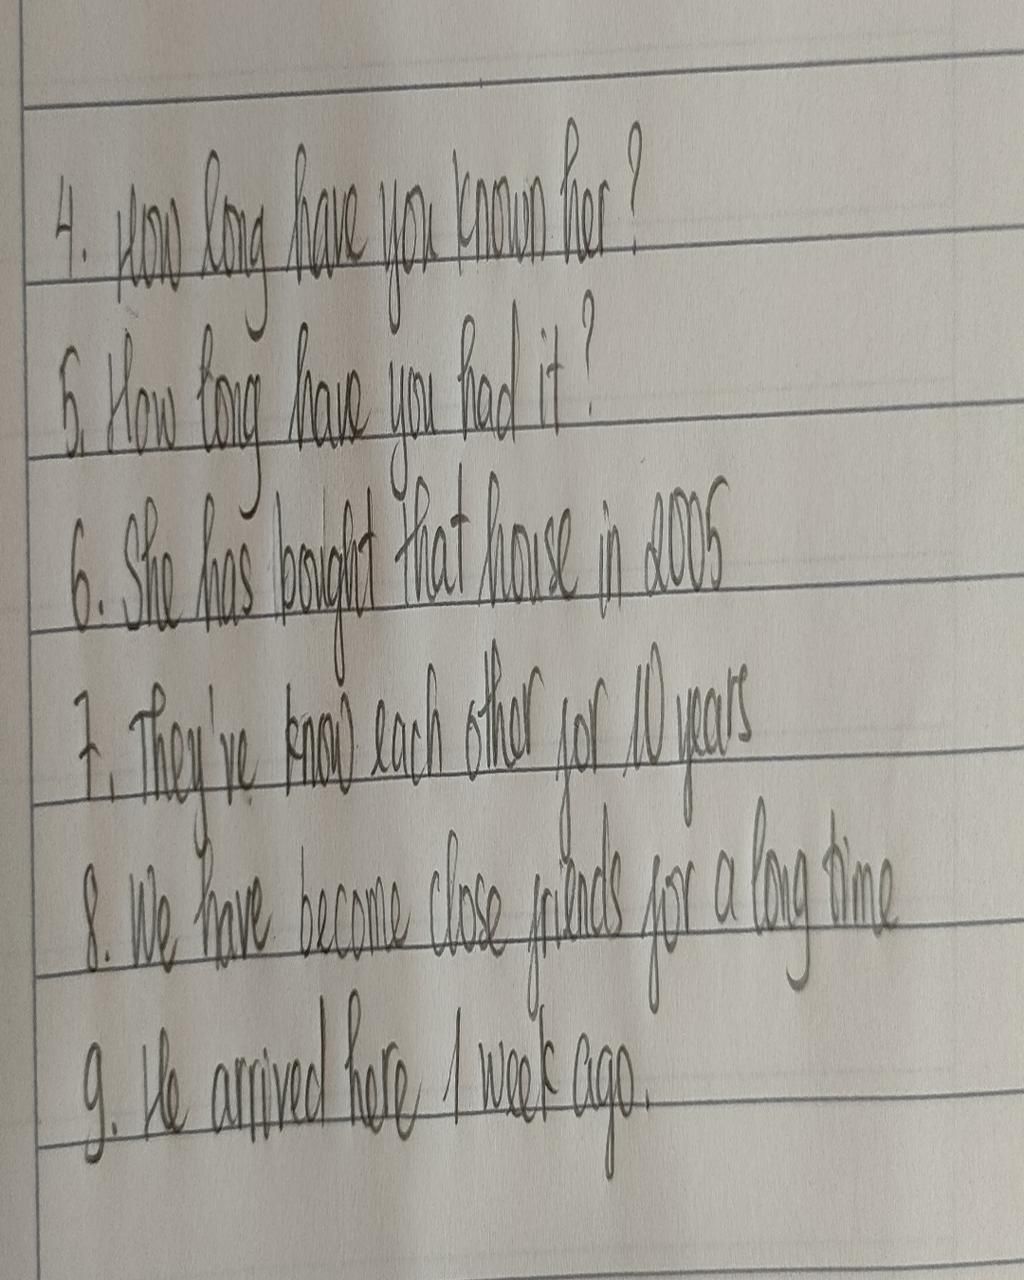 4. How long have you known her?
5. How long have you had it?
6. She has bought that house in 2005
7. They've know each other for 10 years
8. We have become close friends for a long time
9. He arrived here 1 week ago.